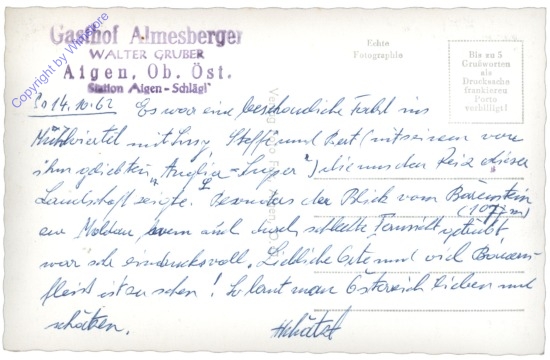 Gasthof Almesberger
WALTER GRUBER
Aigen, Ob. Öst.
Station Aigen - Schlägl
Copyright by
Echte
Fotographie
Bis zu 5
Grußworten
als
Drucksache
frankieren
Porto
verbilligt!
So 14.10.62 Es war eine beschauliche Fahrt ins
Mühlviertel mit Lissy, Steffi und (mit seinem von
ihm geliebten "Anglia-Super") die uns den Reiz dieser
Landschaft zeigte. Besonders der Blick vom Bärenstein
(1077m)
zur Moldau, wenn auch durch schlechte Fernsicht getrübt
war sehr eindrucksvoll. Liebliche Orte und viel Bauern-
fleiß ist zu sehen! So lernt man Österreich lieben und
schätzen.